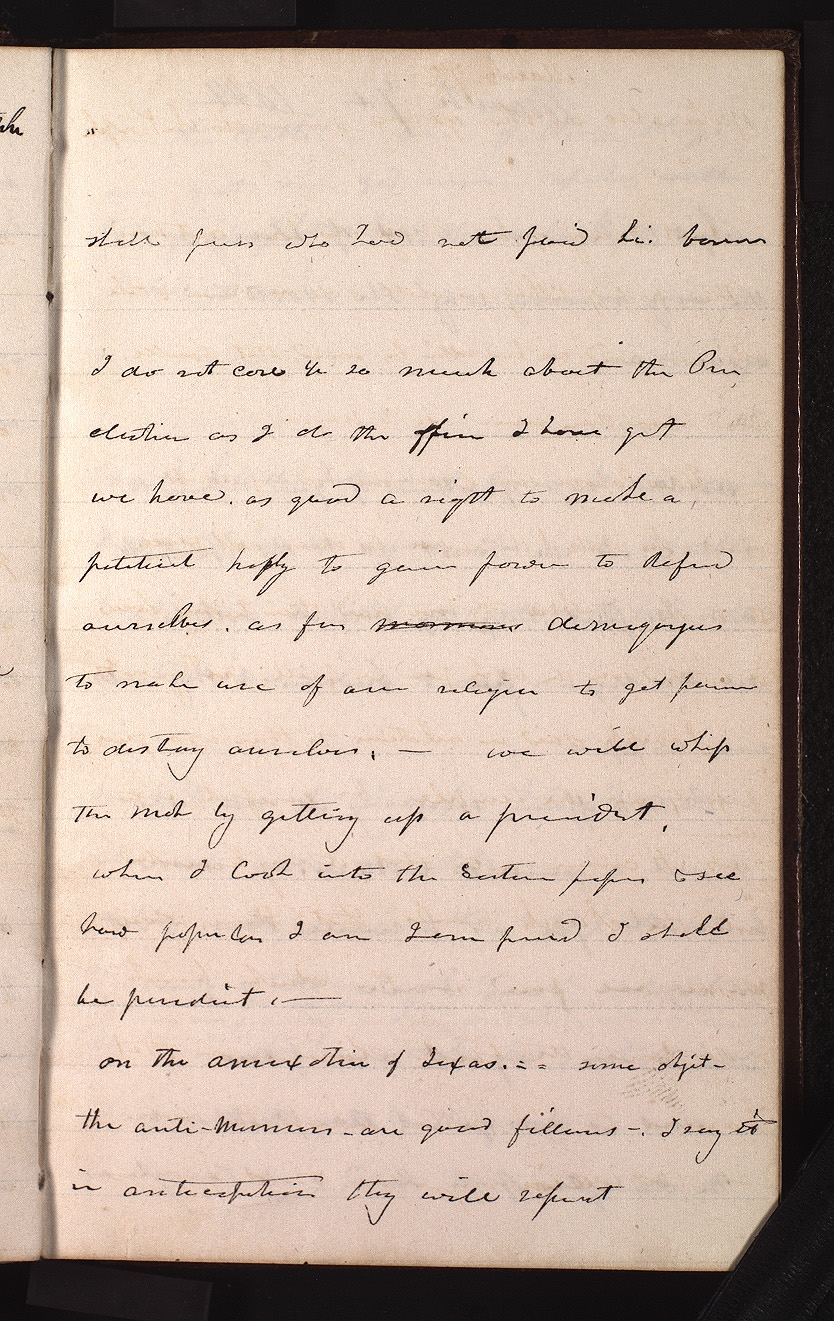 still fears who had not paid his
I do not care so much about the Pre
election as I do the office I have got
we have. as good a right to make a
political party to gain power to defend
ourselves. as for mormons demagogues
to make use of our religion to get power
to destroy ourselves. — we will whip
the mob by getting up a president.
when I look into the Eastern papers & see
how popular I am I am afraid I shall
be president. —
on the annexation of Texas. = = some object -
the anti-Mormons - are good fellows -. I say it
in anticipation they will repent